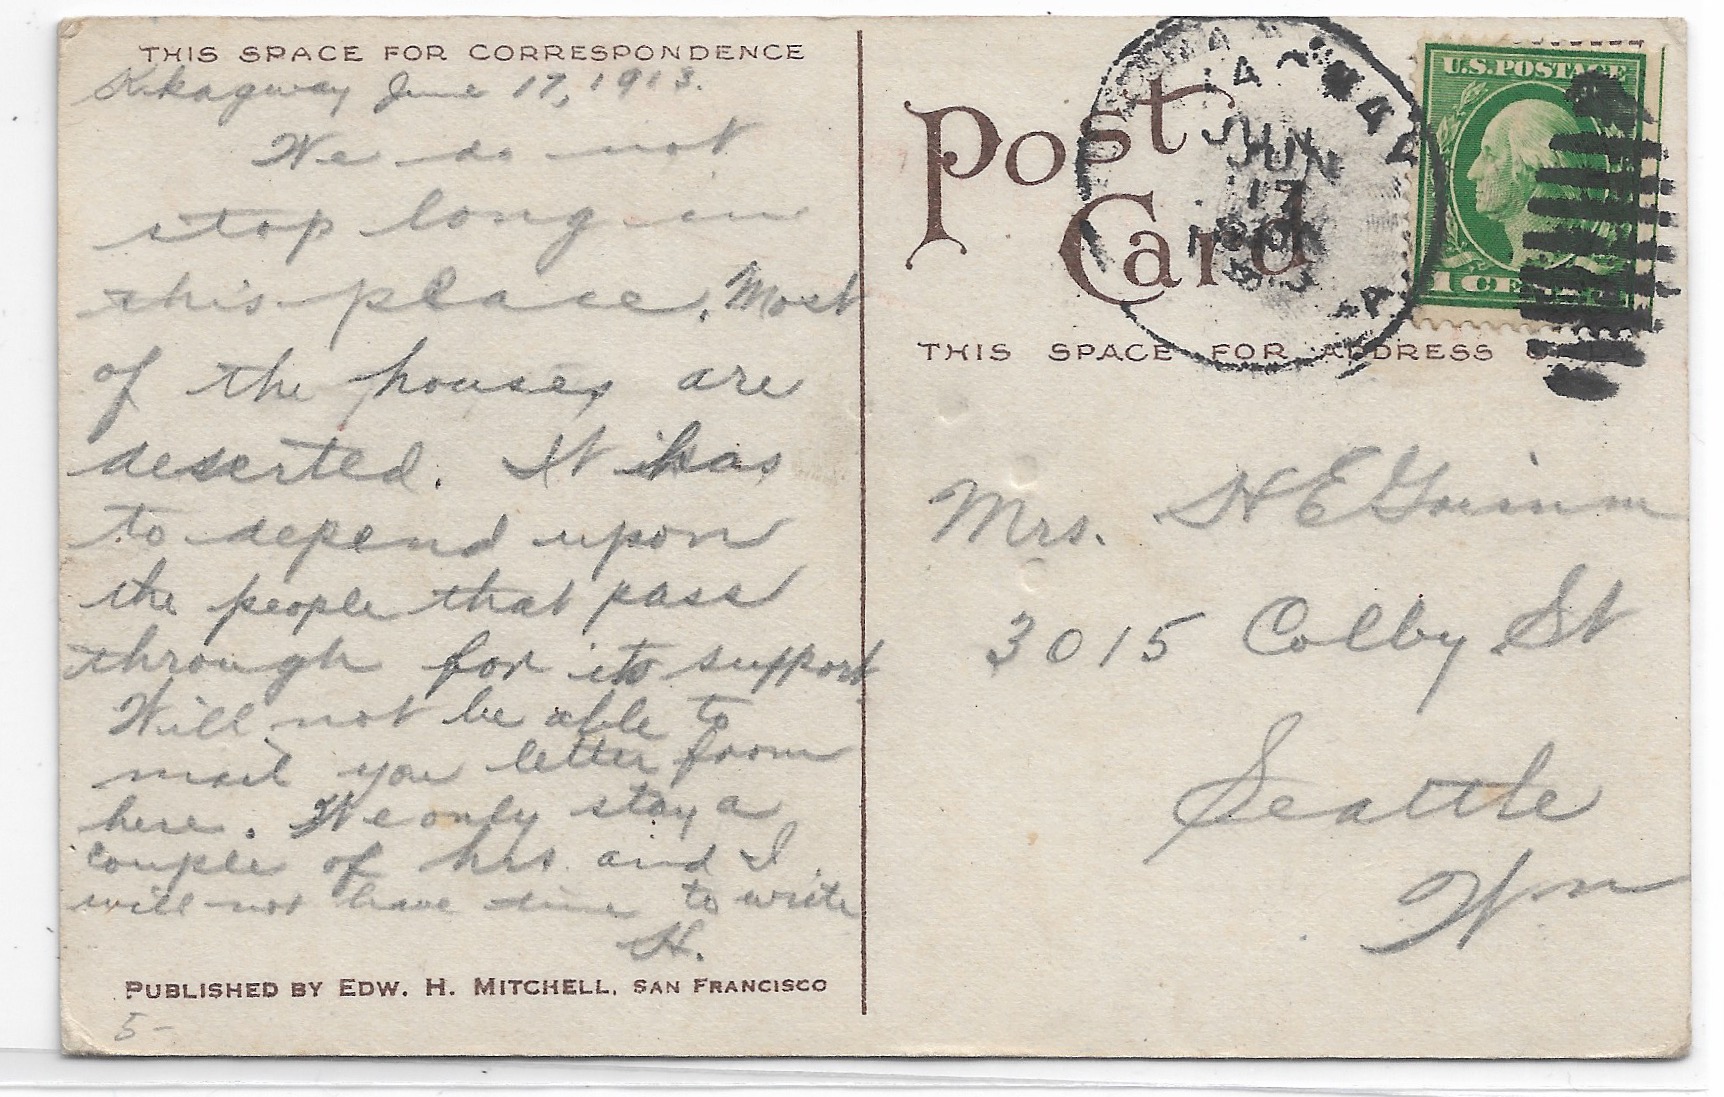 THIS SPACE FOR CORRESPONDENCE
Skagway June 17, 1913.
We do not
stop long in
this place. Most
of the houses are
deserted. It has
to depend upon
the people that pass
through for its support
Will not be able to
mail you letter from
here. We only stay a
couple of hrs and I
will not have time to write
H.
PUBLISHED BY EDW. H. MITCHELL, SAN FRANCISCO
5-
Post
Card
JUN
17
U.S. POSTAGE
1 CE
THIS SPACE FOR ADDRESS
Mrs. H E Grimm
3015 Colby St
Seattle
Wn